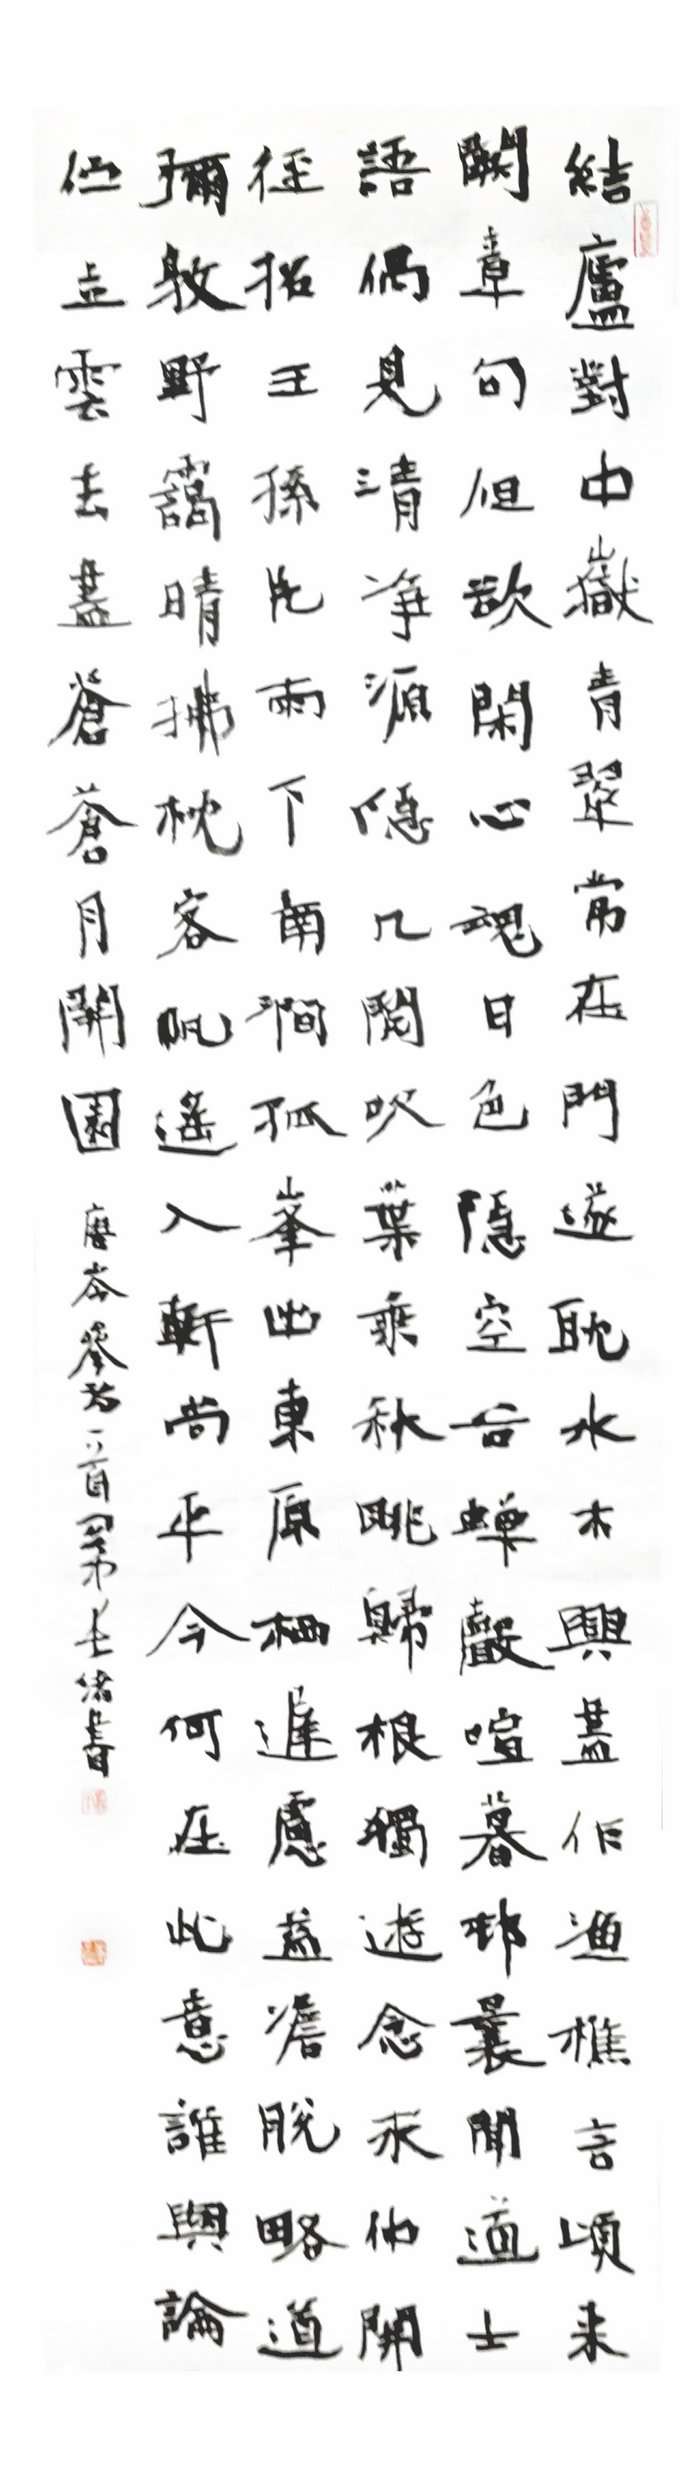 結廬對中嶽青翠常在門遂耽水木興盡作漁樵言頃来
闕章句但欲閑心魂日色隱空谷蟬聲喧暮邨曩聞道士
語偶見清净源隱几閱吹葉乘秋眺歸根獨遊念求仲開
徑招王孫片雨下南澗孤峯出東原栖遲慮益澹脫略道
彌敦野靄晴拂枕客帆遙入軒尚平今何在此意誰與論
佇立雲去盡蒼蒼月開園
唐岑參詩一首 書